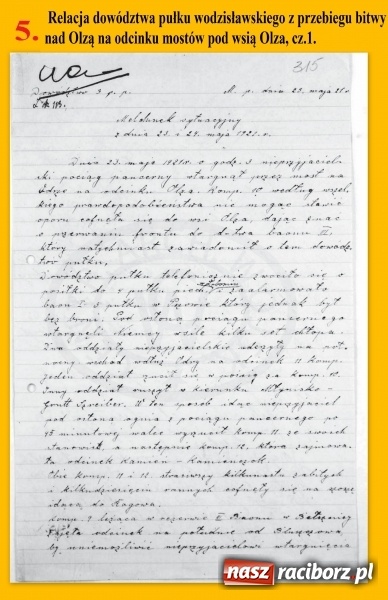 5. Relacja dowództwa pułku wodzisławskiego z przebiegu bitwy
nad Olzą na odcinku mostów pod wsią Olza, cz.1.
315
Dowództwo 3 p. p. M. p. dnia 23. maja 21 r.
Meldunek sytuacyjny
z dnia 23 i 24. maja 1921. r.
Dnia 23. maja 1921. o godz. 3 nieprzyjaciel-
ski pociąg pancerny wtargnął przez most na
Odrze na odcinku Olza. Komp. 10 według wszel-
kiego prawdopodobieństwa nie mogąc stawić
oporu cofnęła się do wsi Olza, dając znać
o przerwaniu frontu do d-twa baonu III.
który natychmiast zawiadomił o tem dowódz-
two pułku.
Dowództwo pułku telefonicznie zwróciło się o
posiłki do 5 pułku piech. zaalarmowało
baon I. 3 pułku w Pszowie który jednak był
bez broni. Pod osłoną pociągu pancernego
wtargnęli Niemcy w sile kilku set chłopa.
oddziały nieprzyjacielskie uderzyły na pół-
nocny wschód wzdłuż Odry na odcinek 11 komp.
jeden oddział w pościg za komp. 10.
Inny oddział ruszył w kierunku
W ten sposób idąc nieprzyjaciel
pod osłoną ognia z pociągu pancernego po
45 minutowej walce wyparł komp. 11 ze swoich
stanowisk, a następnie komp. 12, która zajmowa-
ła odcinek Kamień
Obie komp. 11 i 12 straciwszy kilkunastu zabitych
i kilkudziesięciu rannych cofnęły się na szosę
idącą do Rogowa.
Komp. 9 leżąca w rezerwie III Baonu w
zajęła odcinek na południe od
by uniemożliwić nieprzyjacielowi wtargnięcie
nasz raciborz.pl